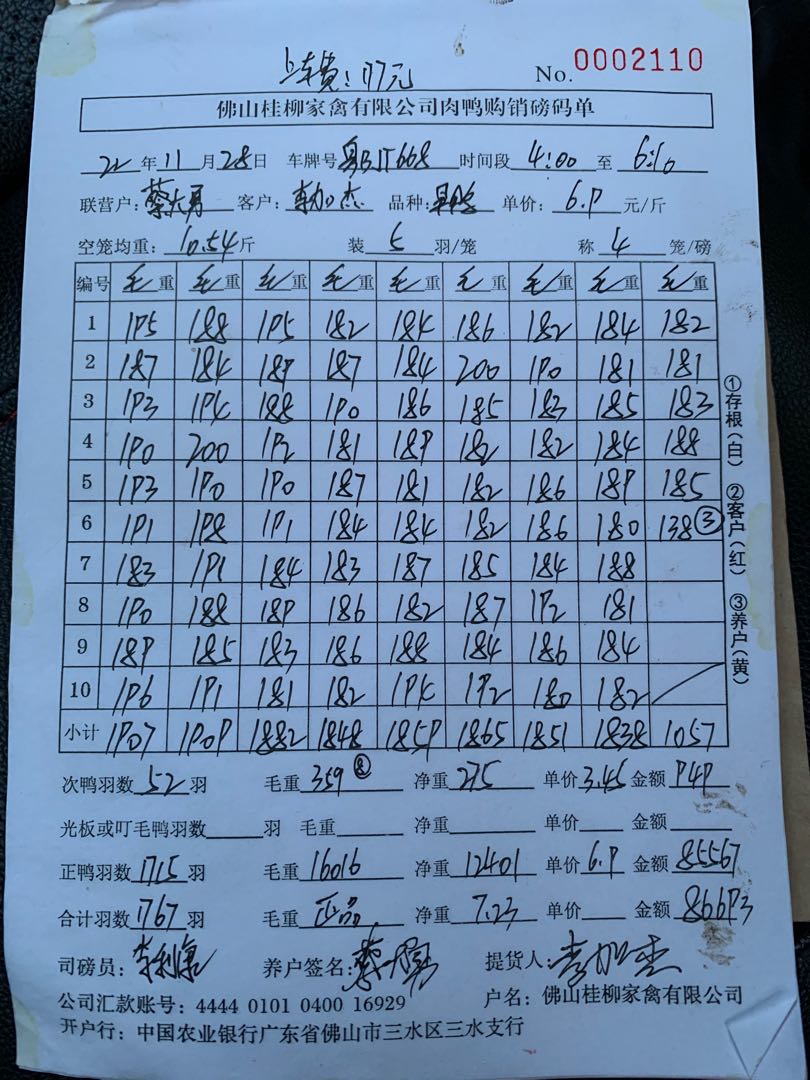 上车费:177元 No. 0002110
佛山桂柳家禽有限公司肉鸭购销磅码单
22年11月28日 车牌号粤BJT668 时间段4:00至6:10
联营户:蔡大勇 客户:李加杰 品种: 单价:6.9元/斤
空笼均重:10.54斤 装5羽/笼 称4笼/磅
编号 毛重 毛重 毛重 毛重 毛重 毛重 毛重 毛重 毛重
1 195 188 195 182 184 186 182 184 182
2 187 184 189 187 184 200 190 181 181
3 193 194 188 190 186 185 183 185 183
4 190 200 192 181 189 182 182 184 188
5 193 190 190 187 181 182 186 189 185
6 191 198 191 184 184 182 186 180 138③
7 183 191 184 183 187 185 184 188
8 190 188 189 186 182 187 192 181
9 189 185 183 186 188 184 186 184
10 196 191 181 182 194 192 180 182
小计 1907 1909 1882 1848 1859 1865 1851 1838 1057
次鸭羽数52羽 毛重359⑧ 净重275 单价3.45 金额949
光板或叮毛鸭羽数 羽 毛重 净重 单价 金额
正鸭羽数1715羽 毛重16016 净重12401 单价6.9 金额85567
合计羽数1767羽 毛重正品 净重7.23 单价 金额86693
司磅员:李利康 养户签名:蔡大勇 提货人:李加杰
公司汇款账号:4444 0101 0400 16929 户名:佛山桂柳家禽有限公司
开户行:中国农业银行广东省佛山市三水区三水支行
①存根(白) ②客户(红) ③养户(黄)